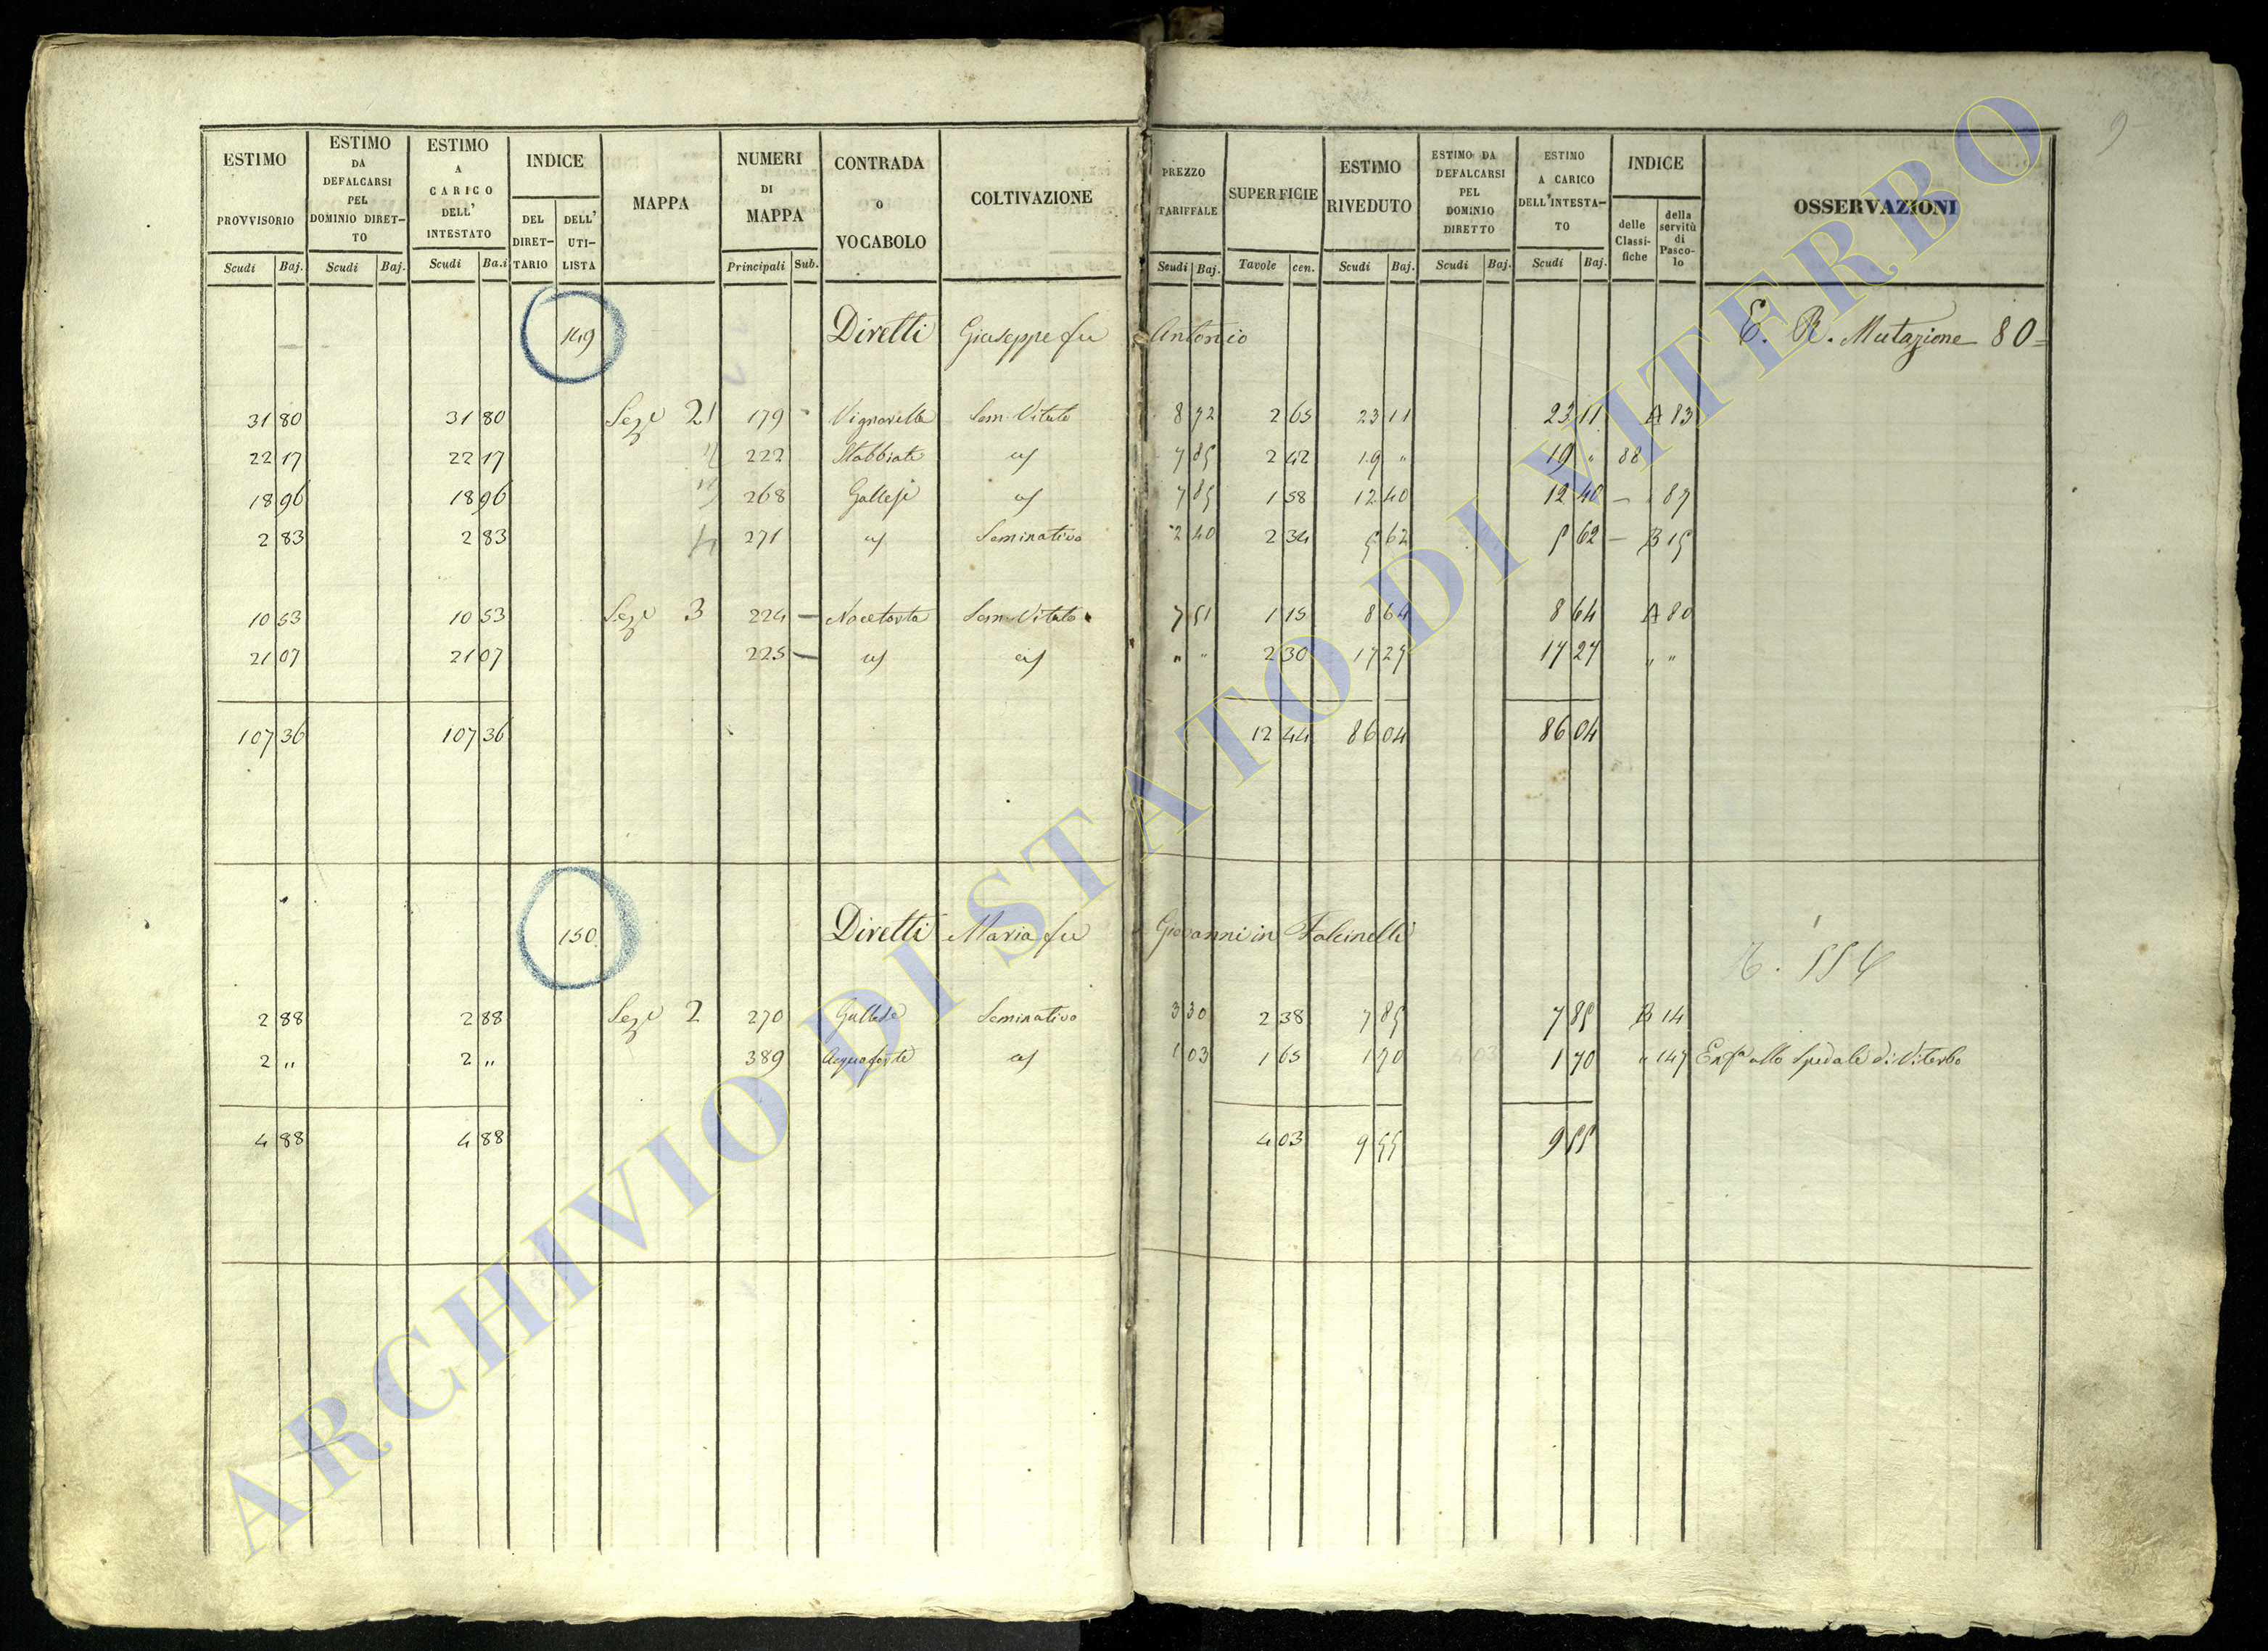 9
ESTIMO PROVVISORIO
ESTIMO DA DEFALCARSI PEL DOMINIO DIRET-TO
ESTIMO A CARICO DELL' INTESTATO
INDICE
DEL DIRET-TARIO
DELL' UTI-LISTA
MAPPA
NUMERI DI MAPPA
CONTRADA O VOCABOLO
COLTIVAZIONE
PREZZO TARIFFALE
SUPERFICIE
ESTIMO RIVEDUTO
ESTIMO DA DEFALCARSI PEL DOMINIO DIRETTO
ESTIMO A CARICO DELL'INTESTA-TO
INDICE
delle Classi-fiche
della servitù di Pasco-lo
OSSERVAZIONI
Scudi Baj. Scudi Baj. Scudi Ba.i Principali Sub. Scudi Baj. Tavole cen. Scudi Baj. Scudi Baj. Scudi Baj.
149 Diretti Giuseppe fu Antonio E. R. Mutazione 80=
31 80 31 80 Seze 2 179 Vignarella Sem. Vitato 8 72 2 65 23 11 23 11 A 83
22 17 22 17 222 Stabbiate 7 85 2 42 19 " 19 " 88
18 96 18 96 268 Gallese 7 85 1 58 12 40 12 40 — " 87
2 83 2 83 271 Seminativo 2 40 2 34 5 62 5 62 — B 15
10 53 10 53 Seze 3 224 — Sem. Vitato 7 51 1 15 8 64 8 64 A 80
21 07 21 07 225 — " " 2 30 17 27 17 27 " "
107 36 107 36 12 44 86 04 86 04
150 Diretti Maria fu Giovanni in Falcinelli
2 88 2 88 Seze 2 270 Gallese Seminativo 3 30 2 38 7 85 7 85 B 14
2 " 2 " 389 Acquaforte 1 03 1 65 1 70 1 70 " 147 Enfa allo Spedale di Viterbo
4 88 4 88 4 03 9 55 9 55
ARCHIVIO DI STATO DI VITERBO